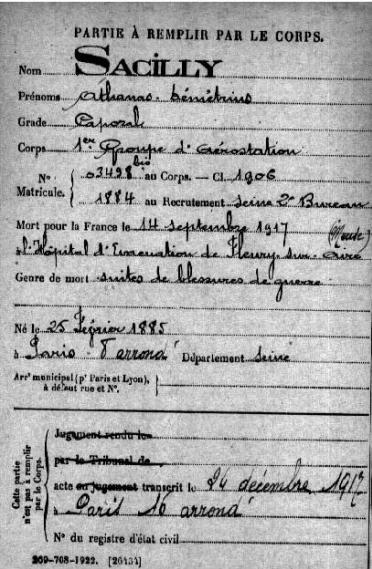 PARTIE À REMPLIR PAR LE CORPS.
Nom SACILLY
Prénoms Athanas Démétrius
Grade Caporal
Corps 1er Groupe d'Aérostation
N° Matricule. 03498 bis au Corps. — Cl. 1906
1884 au Recrutement Seine 2e Bureau
Mort pour la France le 14 septembre 1917
à l'Hôpital d'Evacuation de Fleury-sur-Aire (Meuse)
Genre de mort suites de blessures de guerre
Né le 25 Février 1885
à Paris arrond' Département Seine
Arr' municipal (p' Paris et Lyon),
à défaut rue et N°.
Cette partie n'est pas à remplir par le Corps.
Jugement rendu le
par le Tribunal de
acte ou jugement transcrit le 24 décembre 1917
à Paris 16 arrond'
N° du registre d'état civil
269-708-1922. [26434]